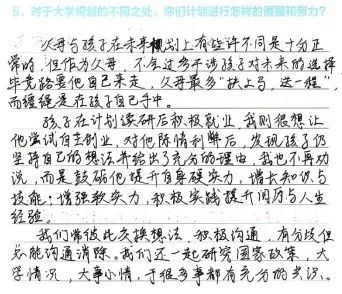 5、对于大学规划的不同之处，你们计划进行怎样的调整和努力？
父母与孩子在未来规划上有些许不同是十分正
常的，但作为父母，不会过多干涉孩子对未来的选择
毕竟路要他自己来走，父母最多“扶上马，送一程”，
而缰绳是在孩子自己手中。
孩子在计划读研后积极就业，我则很想让
他尝试自主创业，对他陈情利弊后，发现孩子仍
坚持自己的想法并给出了充分的理由，我也不再劝
说，而是鼓励他提升自身硬实力，增长知识与
技能；增强软实力，积极实践提升阅历与人生
经验。
我们常彼此交换想法，积极沟通，有分歧但
总能沟通消除。我们还一起研究国家政策，大
学情况，大事小情，于很多事都有充分的共识。